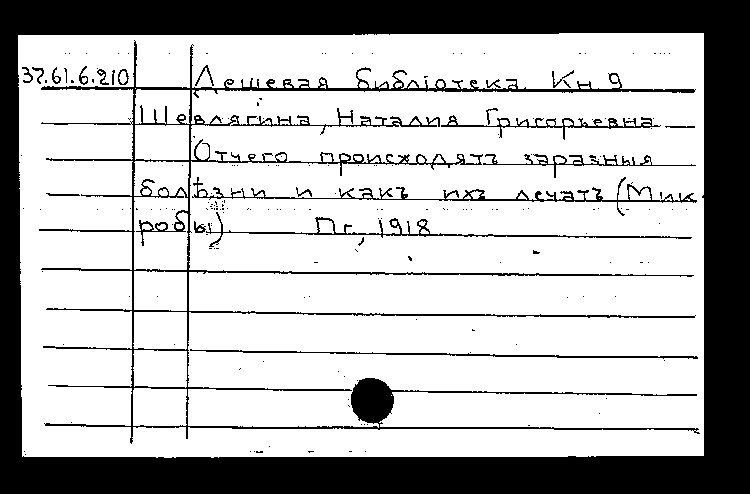 37.61.6.210 Дешевая библіотека. Кн. 9
Шевлягина, Наталия Григорьевна
Отчего происходятъ заразныя
болѣзни и какъ ихъ лечатъ (Мик-
робы). Пг., 1918